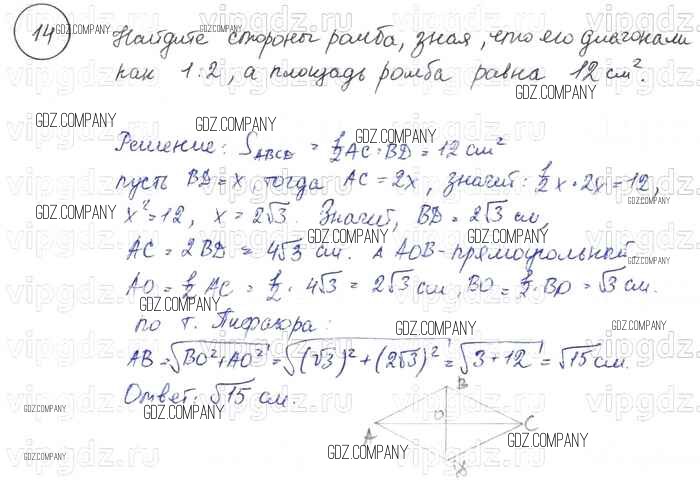 14 Найдите стороны ромба, зная, что его диагонали
как 1:2, а площадь ромба равна 12 см².
Решение: S_ABCD = 1/2 AC·BD = 12 см²
пусть BD = x, тогда AC = 2x, значит: 1/2 x·2x = 12,
x² = 12, x = 2√3. Значит, BD = 2√3 см,
AC = 2BD = 4√3 см. △ AOB - прямоугольный
AO = 1/2 AC = 1/2 · 4√3 = 2√3 см, BO = 1/2 · BD = √3 см.
по т. Пифагора:
AB = √(BO² + AO²) = √((√3)² + (2√3)²) = √(3 + 12) = √15 см.
Ответ: √15 см.
B
O
A
C
GDZ.COMPANY
vipgdz.ru